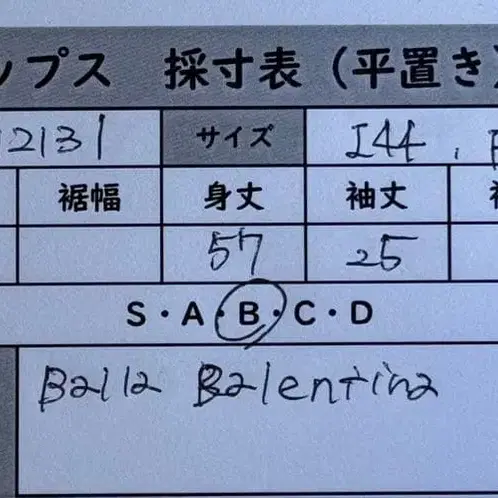 ップス 採寸表（平置き）
12131 サイズ I44.
裾幅 身丈 袖丈
57 25
S・A・B・C・D
Balla Balentina